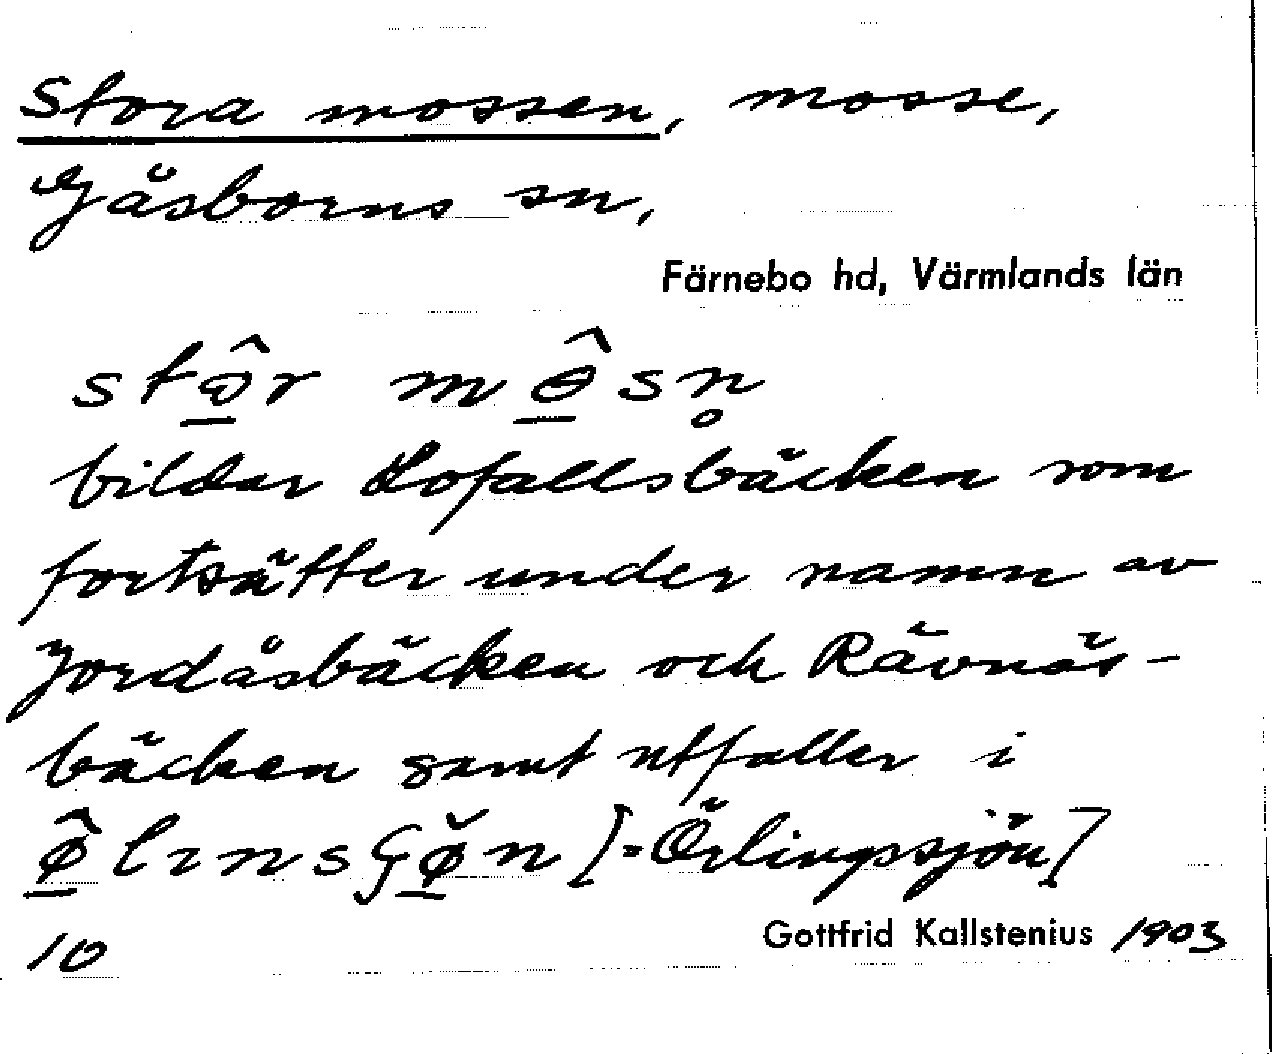 Stora mossen, mosse,
Gåsborns sn,
Färnebo hd, Värmlands län
bildar Lofallsbäcken som
fortsätter under namn av
Jordåsbäcken och Rävnäs-
bäcken samt utfaller i
[=Örlingssjön]
Gottfrid Kallstenius 1903
10